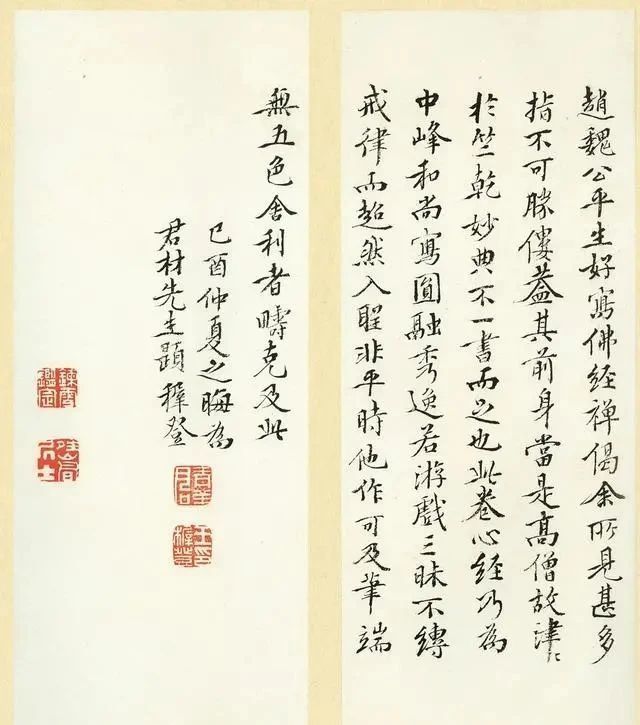 趙魏公平生好寫佛經禅偈余所見甚多
指不可勝僂蓋其前身當是髙僧故津〻
於竺乾妙典不一書而足也此卷心經乃為
中峰和尚寫圓融秀逸若游戲三昧不縛
戒律而超然入聖非平時他作可及筆端
無五色舍利者疇克及此
己酉仲夏之晦為
君材先生題穉登
王印穉登
鑑定